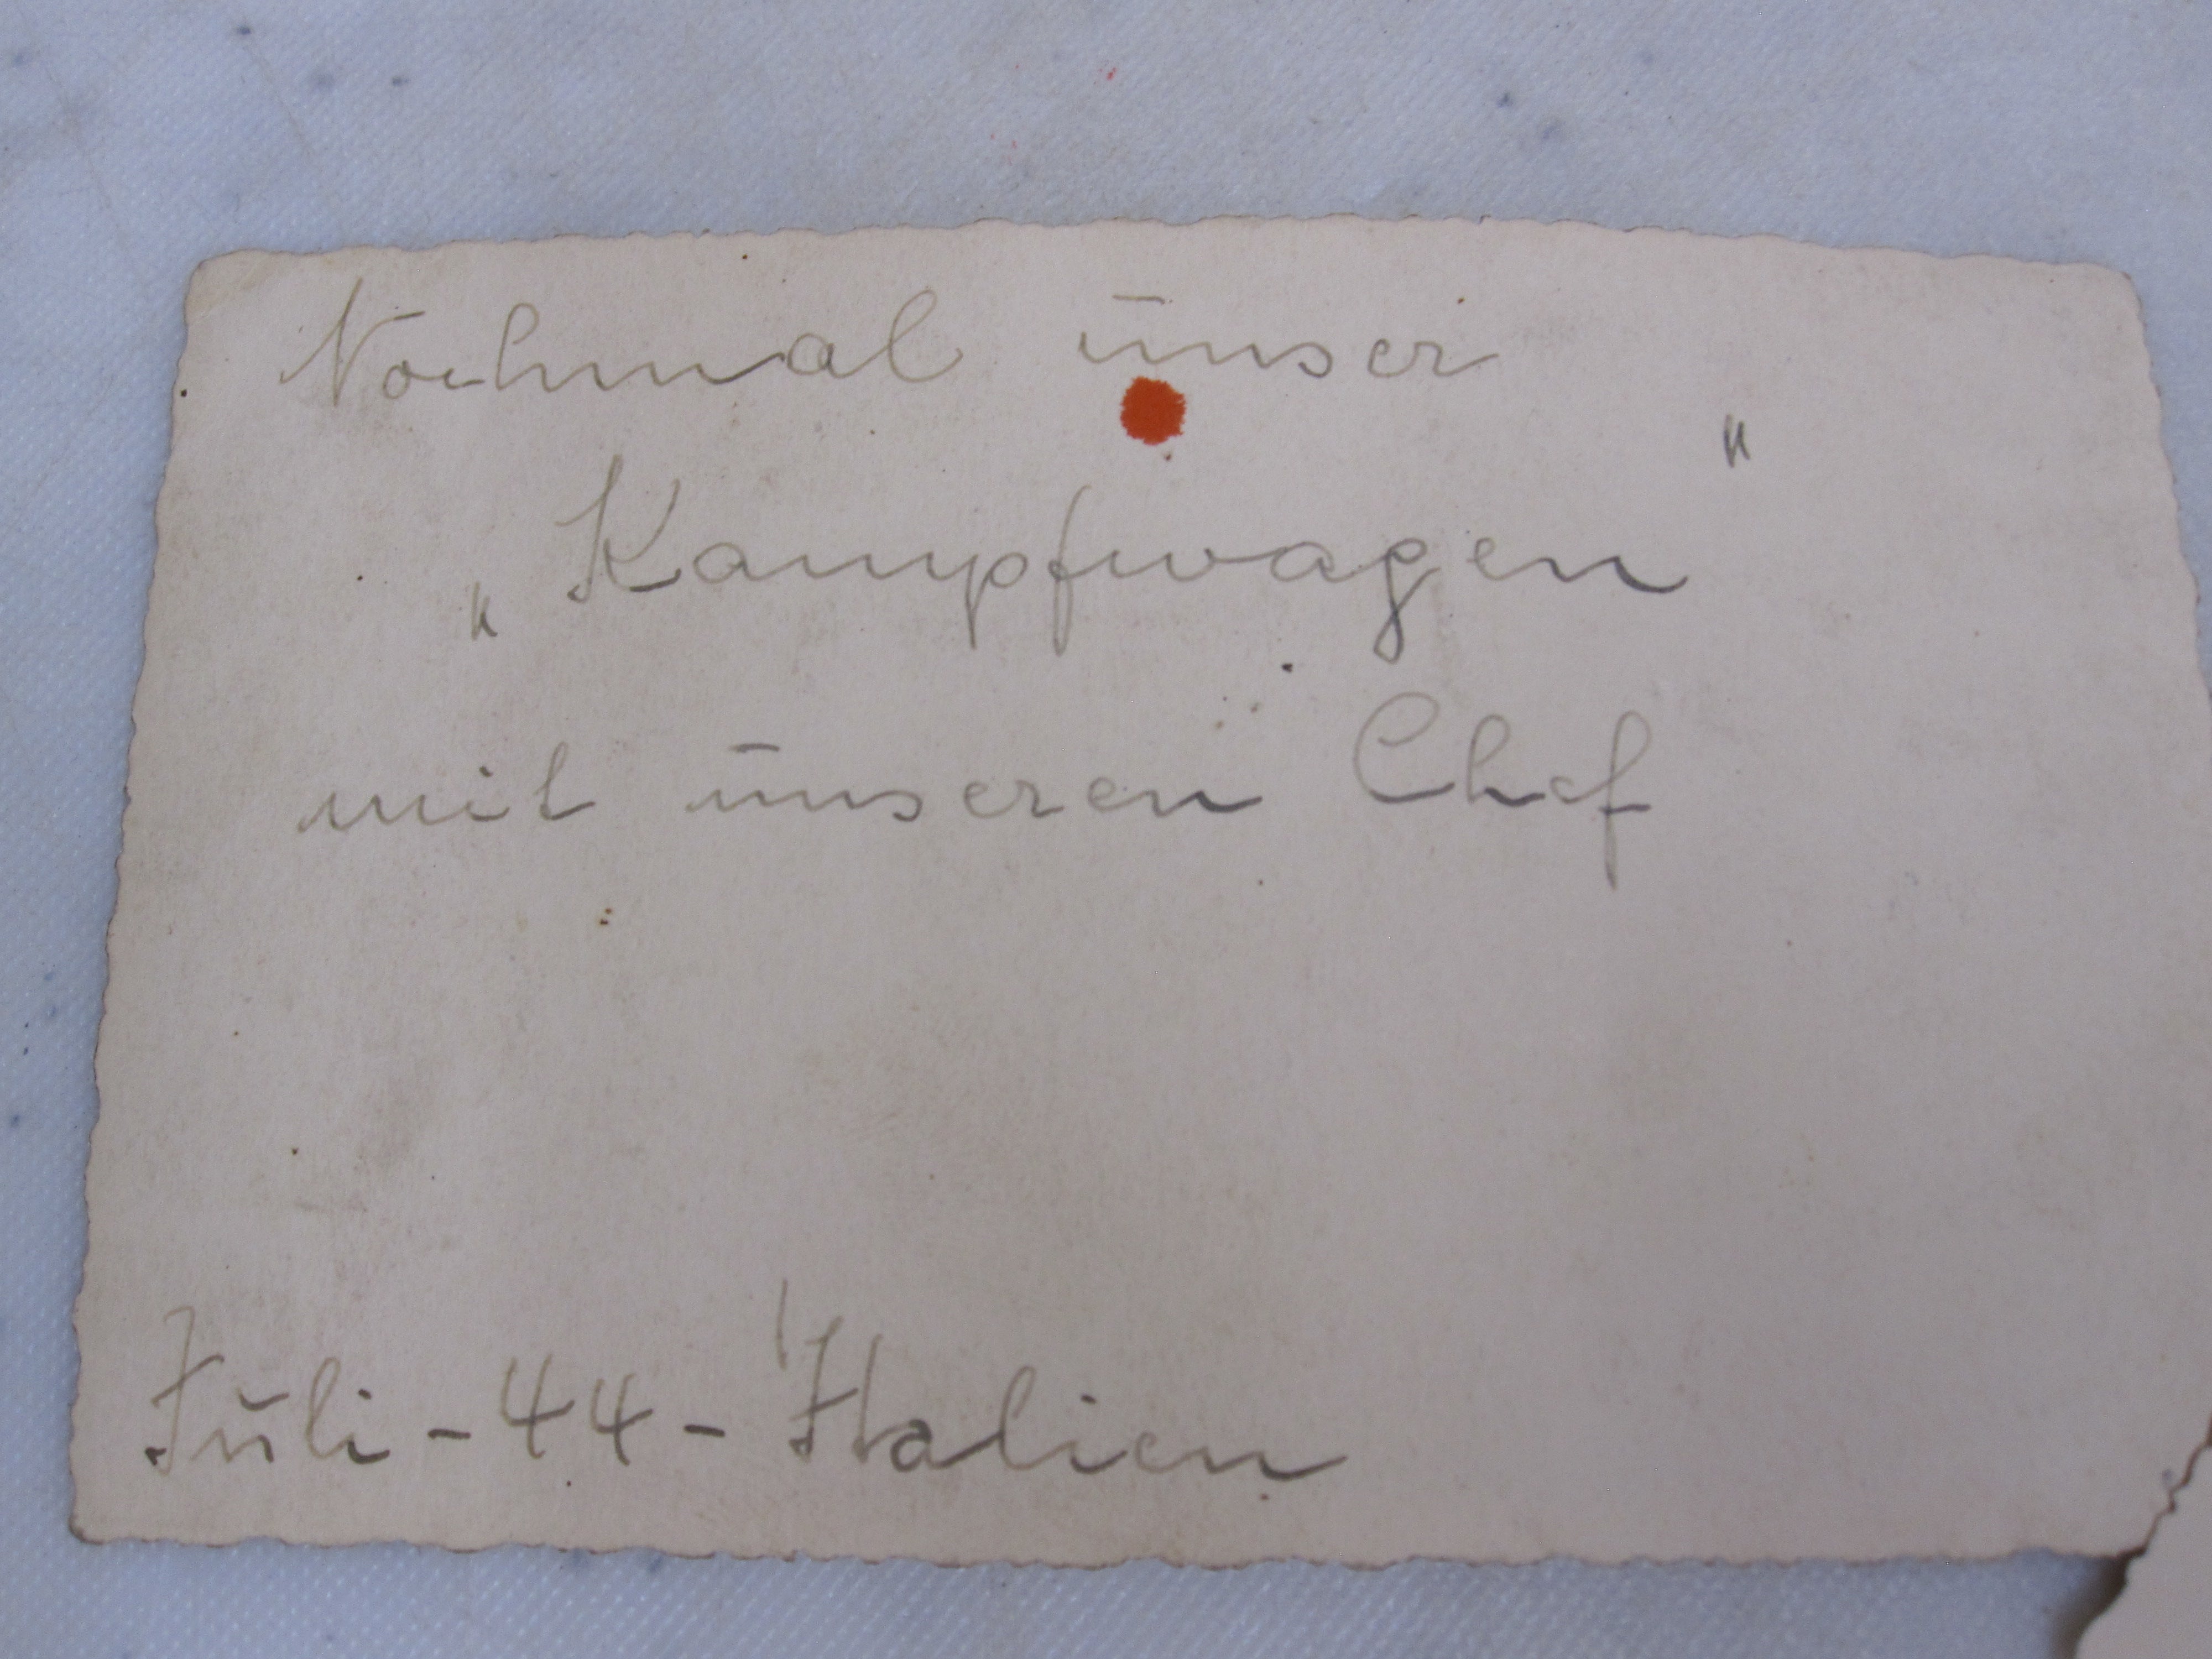 Nochmal unser
„Kampfwagen"
mit unseren Chef
Juli - 44 - Italien